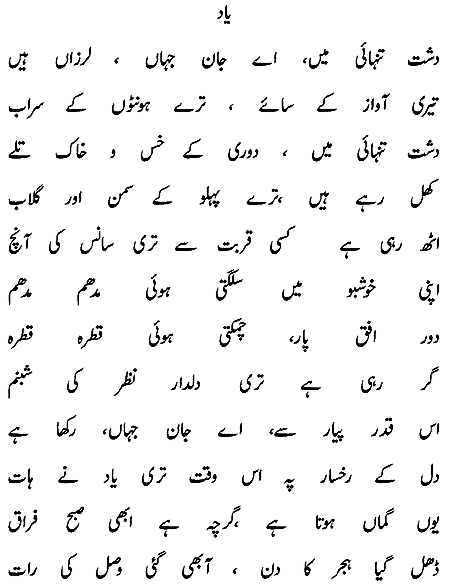 یاد
دشت تنہائی میں، اے جان جہاں ، لرزاں ہیں
تیری آواز کے سائے ، ترے ہونٹوں کے سراب
دشت تنہائی میں ، دوری کے خس و خاک تلے
کھل رہے ہیں ،ترے پہلو کے سمن اور گلاب
اٹھ رہی ہے کسی قربت سے تری سانس کی آنچ
اپنی خوشبو میں سلگتی ہوئی مدھم مدھم
دور افق پار، چمکتی ہوئی قطرہ قطرہ
گر رہی ہے تری دلدار نظر کی شبنم
اس قدر پیار سے، اے جان جہاں، رکھا ہے
دل کے رخسار پہ اس وقت تری یاد نے ہات
یوں گماں ہوتا ہے ،گرچہ ہے ابھی صبح فراق
ڈھل گیا ہجر کا دن ، آبھی گئی وصل کی رات